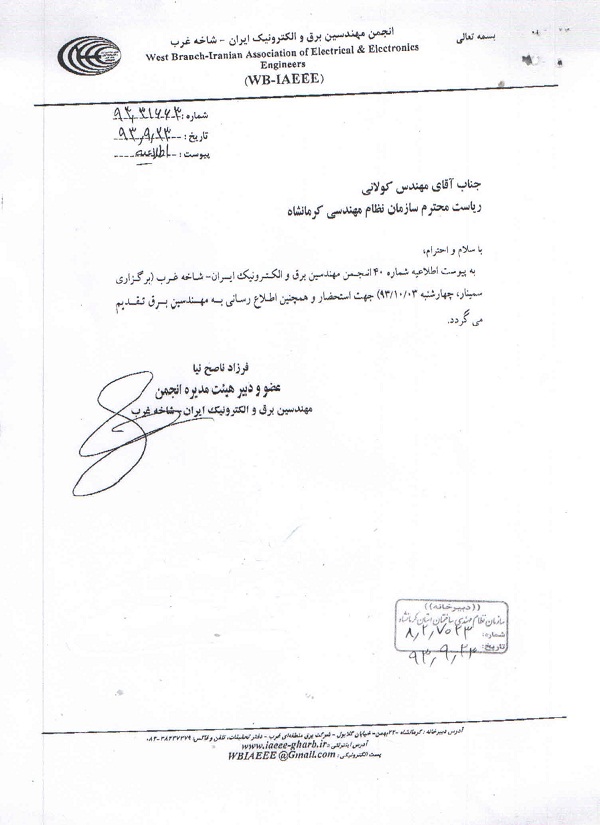 بسمه تعالی
انجمن مهندسین برق و الکترونیک ایران - شاخه غرب
West Branch-Iranian Association of Electrical & Electronics
Engineers
(WB-IAEEE)
شماره:
تاریخ: ۹۳,۹,۲۳
پیوست: اطلاعیه
جناب آقای مهندس کولانی
ریاست محترم سازمان نظام مهندسی کرمانشاه
با سلام و احترام،
به پیوست اطلاعیه شماره ۴۰ انجمن مهندسین برق و الکترونیک ایران- شاخه غرب (برگزاری
سمینار، چهارشنبه ۹۳/۱۰/۰۳) جهت استحضار و همچنین اطلاع رسانی به مهندسین برق تقدیم
می گردد.
فرزاد ناصح نیا
عضو و دبیر هیئت مدیره انجمن
مهندسین برق و الکترونیک ایران - شاخه غرب
((دبیرخانه))
سازمان نظام مهندسی ساختمان استان کرمانشاه
شماره: ۸,۲,۷۰۲۳
تاریخ: ۹۳,۹,۲۴
آدرس دبیرخانه : کرمانشاه -۲۲بهمن- خیابان گلایول - شرکت برق منطقه‌ای غرب - دفتر تحقیقات، تلفن و فاکس: ۳۸۲۳۷۲۷۹-۰۸۳
آدرس اینترنتی: www.iaeee-gharb.ir
پست الکترونیکی: WBIAEEE @Gmail.com